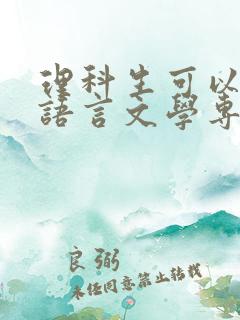 理科生可以
語言文學專
良弼
未经同意禁止转载